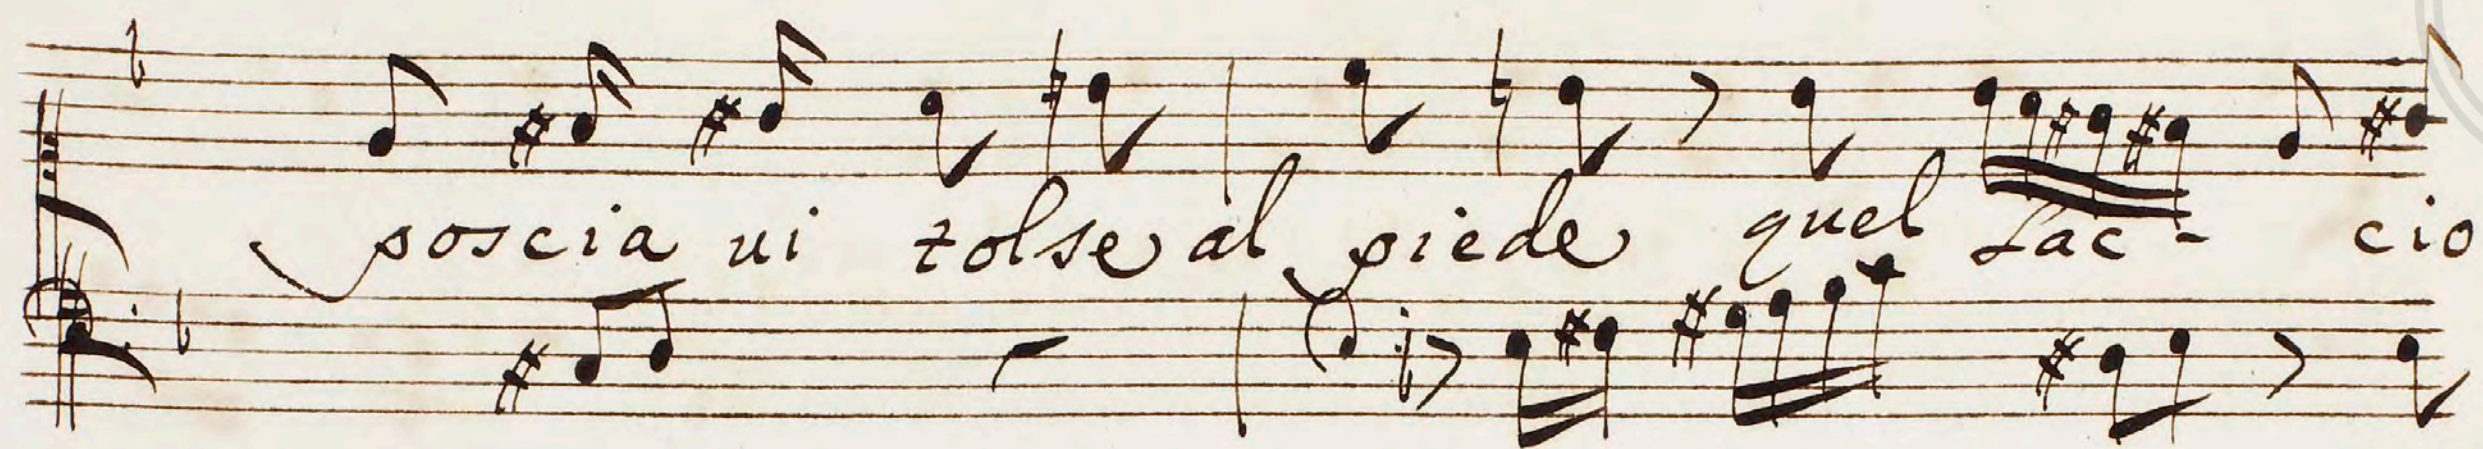 poscia ui tolse al piede quel Lac - cio